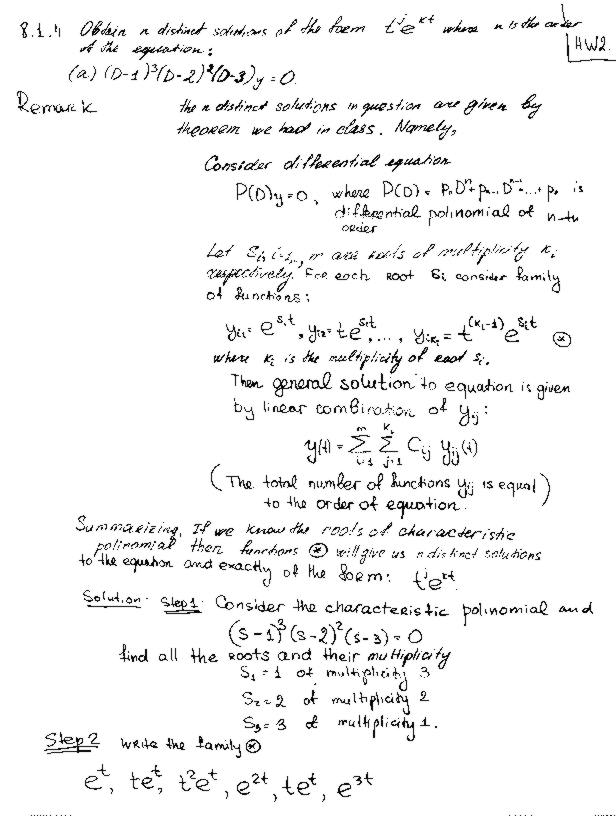 8.1.4 Obtain n distinct solutions of the form t^j e^{rt} where n is the order
of the equation:
HW2.
(a) (D-1)³(D-2)²(D-3)y = 0
Remark
the n distinct solutions in question are given by
theorem we had in class. Namely,
Consider differential equation
P(D)y = 0, where P(D) = pₙDⁿ + pₙ₋₁Dⁿ⁻¹ + ... + p₀ is
differential polinomial of n-th
order
Let Sᵢ, i=1,..., m are roots of multiplicity Kᵢ
respectively. For each root Sᵢ consider family
of functions:
yᵢ₁ = e^{sᵢt}, yᵢ₂ = te^{sᵢt}, ..., yᵢₖᵢ = t^{(Kᵢ-1)} e^{sᵢt} ⊛
where Kᵢ is the multiplicity of root sᵢ.
Then general solution to equation is given
by linear combination of yᵢⱼ:
y(t) = Σ_{i=1}^{m} Σ_{j=1}^{Kᵢ} Cᵢⱼ yᵢⱼ(t)
(The total number of functions yᵢⱼ is equal)
to the order of equation.
Summarizing, If we know the roots of characteristic
polinomial then functions ⊛ will give us n distinct solutions
to the equation and exactly of the form: t^j e^{rt}.
Solution: Step 1: Consider the characteristic polinomial and
(s-1)³(s-2)²(s-3) = 0
find all the roots and their multiplicity
S₁ = 1 of multiplicity 3
S₂ = 2 of multiplicity 2
S₃ = 3 of multiplicity 1.
Step 2 write the family ⊛
e^t, te^t, t²e^t, e^{2t}, te^t, e^{3t}